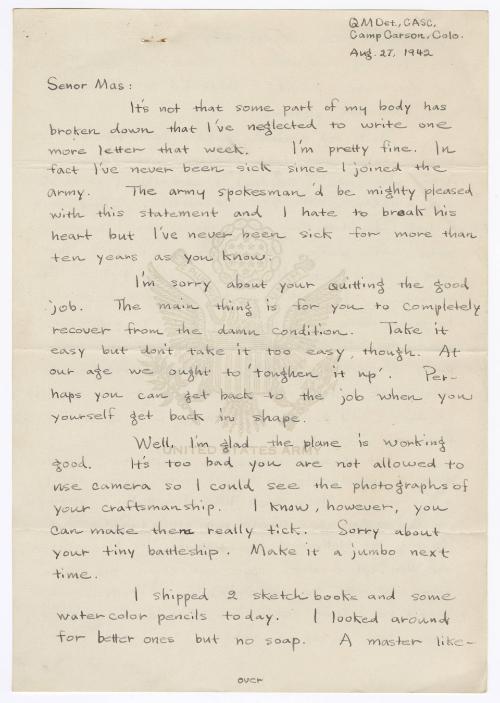 QM Det., CASC,
Camp Carson, Colo.
Aug. 27, 1942
Senor Mas:
It's not that some part of my body has
broken down that I've neglected to write one
more letter that week. I'm pretty fine. In
fact I've never been sick since I joined the
army. The army spokesman'd be mighty pleased
with this statement and I hate to break his
heart but I've never been sick for more than
ten years as you know.
I'm sorry about your quitting the good
job. The main thing is for you to completely
recover from the damn condition. Take it
easy but don't take it too easy, though. At
our age we ought to 'toughen it up'. Per-
haps you can get back to the job when you
yourself get back in shape.
UNITED STATES ARMY
Well, I'm glad the plane is working
good. It's too bad you are not allowed to
use camera so I could see the photographs of
your craftsmanship. I know, however, you
can make them really tick. Sorry about
your tiny battleship. Make it a jumbo next
time.
I shipped 2 sketch books and some
water color pencils today. I looked around
for better ones but no soap. A master like-
over